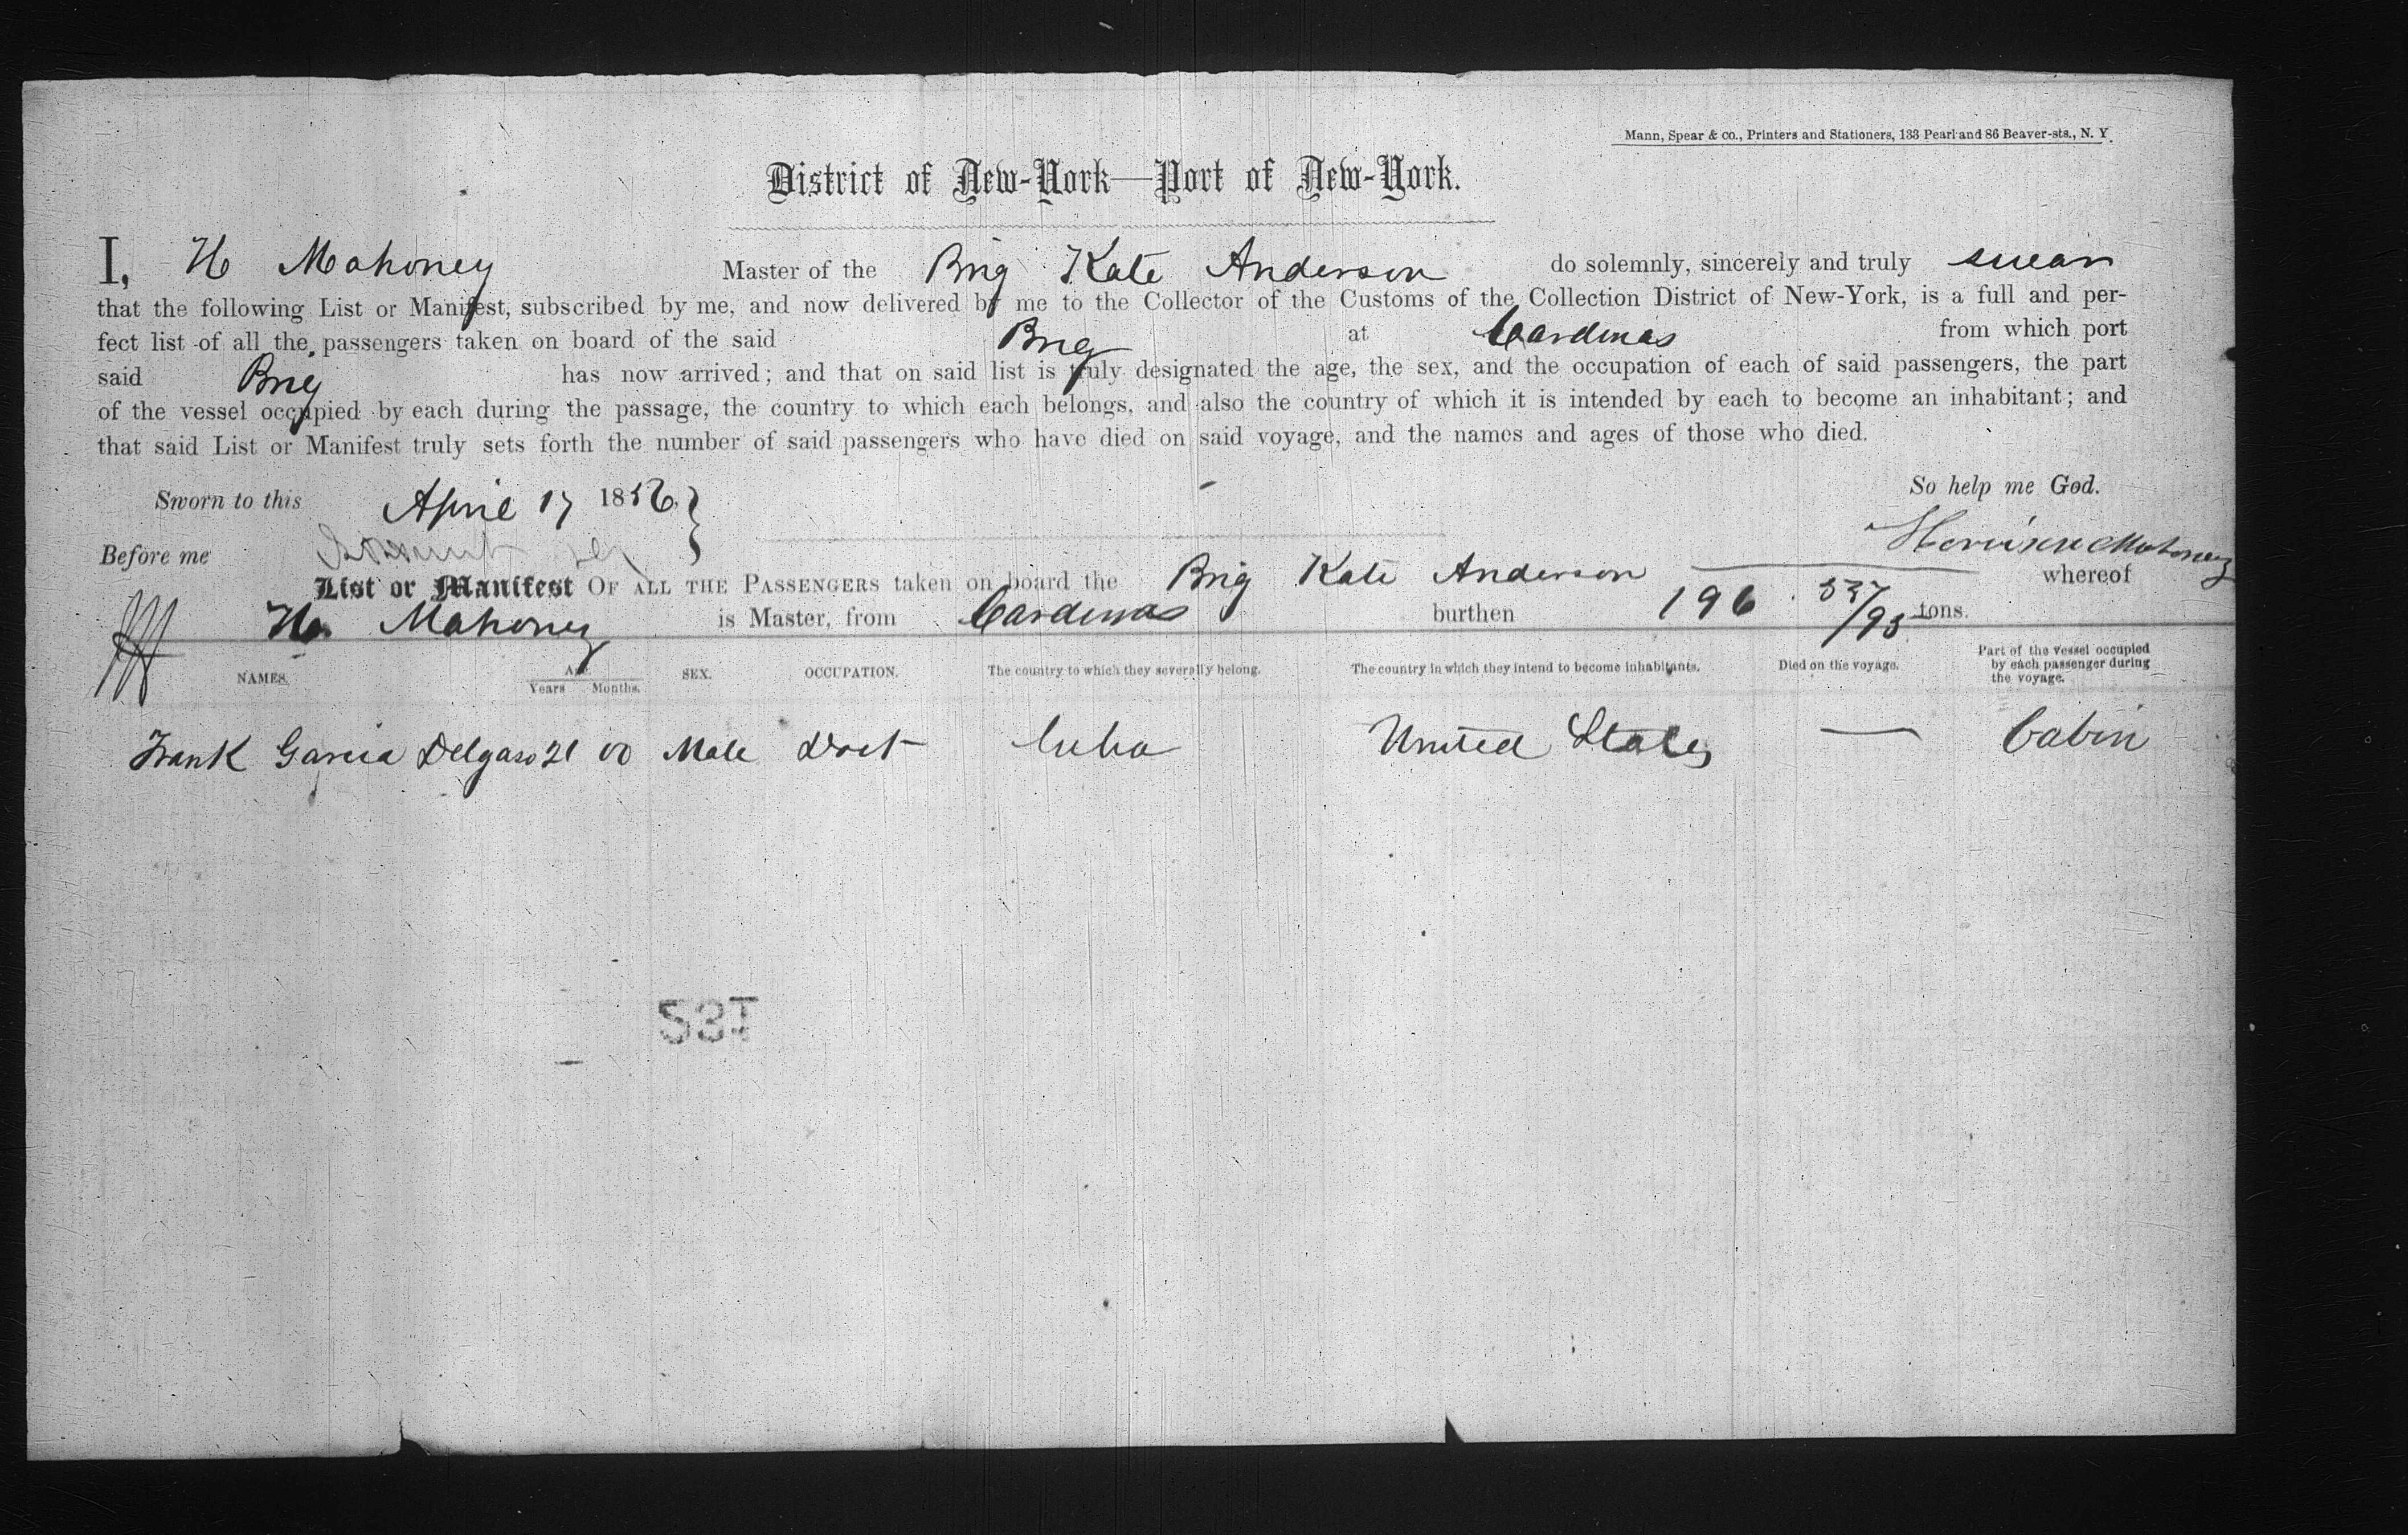 Mann, Spear & co., Printers and Stationers, 133 Pearl and 86 Beaver-sts., N. Y.
District of New-York—Port of New-York.
I, H Mahoney Master of the Brig Kate Anderson do solemnly, sincerely and truly swear
that the following List or Manifest, subscribed by me, and now delivered by me to the Collector of the Customs of the Collection District of New-York, is a full and per-
fect list of all the passengers taken on board of the said Brig at Cardenas from which port
said Brig has now arrived; and that on said list is truly designated the age, the sex, and the occupation of each of said passengers, the part
of the vessel occupied by each during the passage, the country to which each belongs, and also the country of which it is intended by each to become an inhabitant; and
that said List or Manifest truly sets forth the number of said passengers who have died on said voyage, and the names and ages of those who died.
Sworn to this April 17 1856, So help me God.
Before me Mahoney
List or Manifest OF ALL THE PASSENGERS taken on board the Brig Kate Anderson whereof
H Mahoney is Master, from Cardenas burthen 196 /95 tons.
NAMES. Age. Years Months. SEX. OCCUPATION. The country to which they severally belong. The country in which they intend to become inhabitants. Died on the voyage. Part of the vessel occupied by each passenger during the voyage.
Frank Garcia Delgaso 21 00 Male Doct Cuba United States — Cabin
537